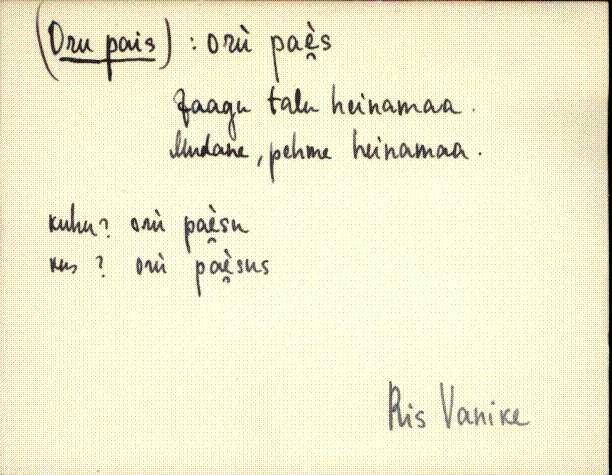 (Oru pais) : orù paè̮s
Jaagu talu heinamaa.
Mudane, pehme heinamaa.
kuhu? orù paè̮su
kus? orù paè̮sus
Ris Vanike